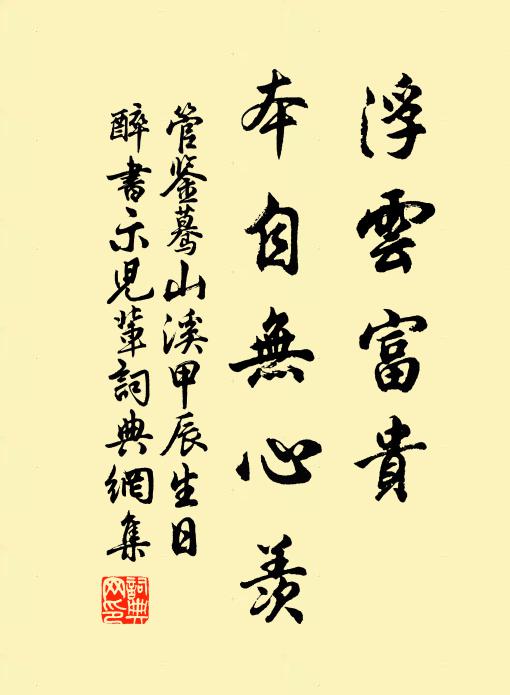 浮雲富貴
本自無心羨
管鉴驀山溪甲辰生日
醉書示児輩詞典網集
詞典网印